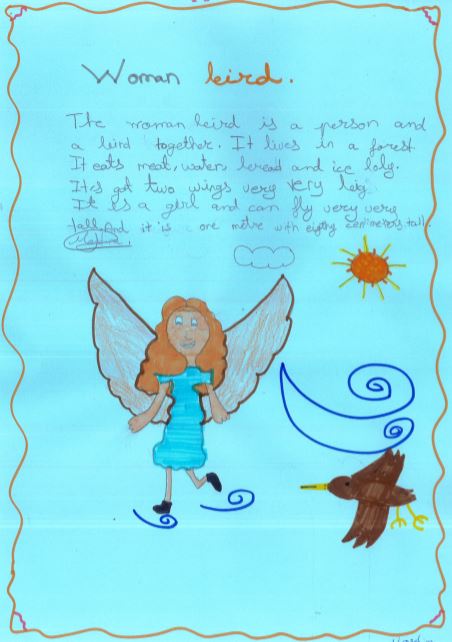 Woman bird.
The woman bird is a person and
a bird together. It lives in a forest
It eats meat, water, bread and ice loly.
It's got two wings very very big
It is a girl and can fly very very
tall. And it is one metre with eighty centimeters tall.